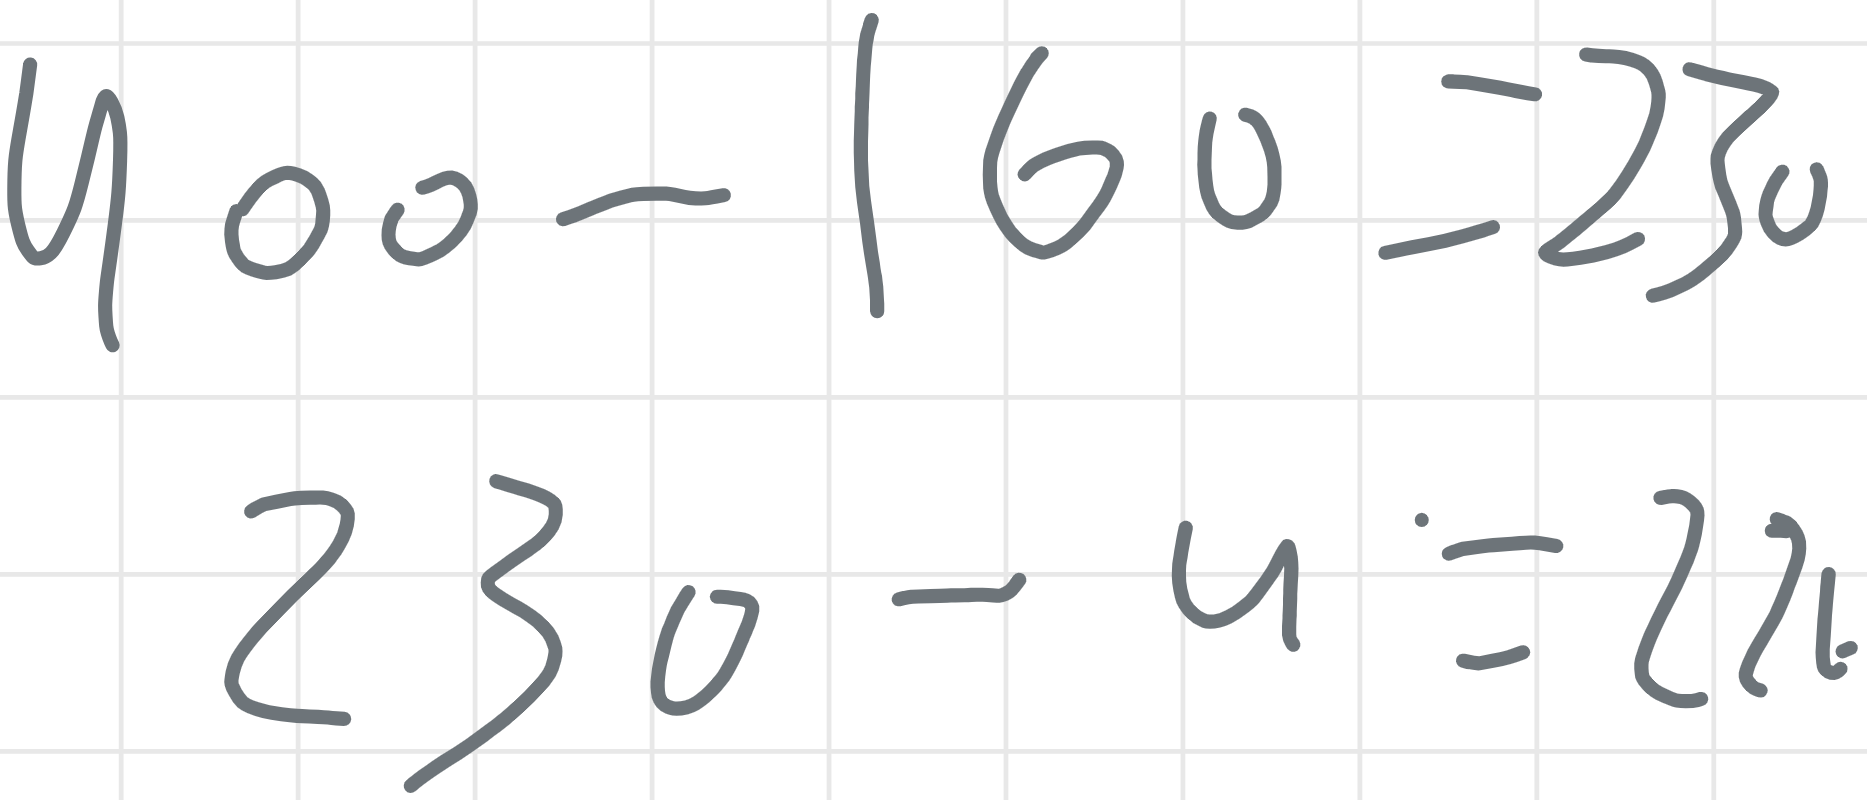 400 - 160 = 230
230 - 4 = 226